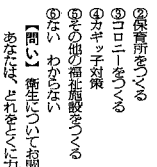 ②保育所をつくる
③コロニーをつくる
④カギッ子対策
⑤その他の福祉施設をつくる
⑥ない わからない
【問い】 衛生についてお聞
あなたは、どれをとくに力